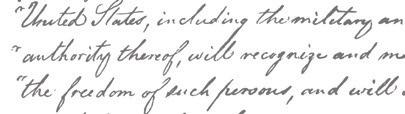 "United States, including the military an
"authority thereof, will recognize and m
"the freedom of such persons, and will